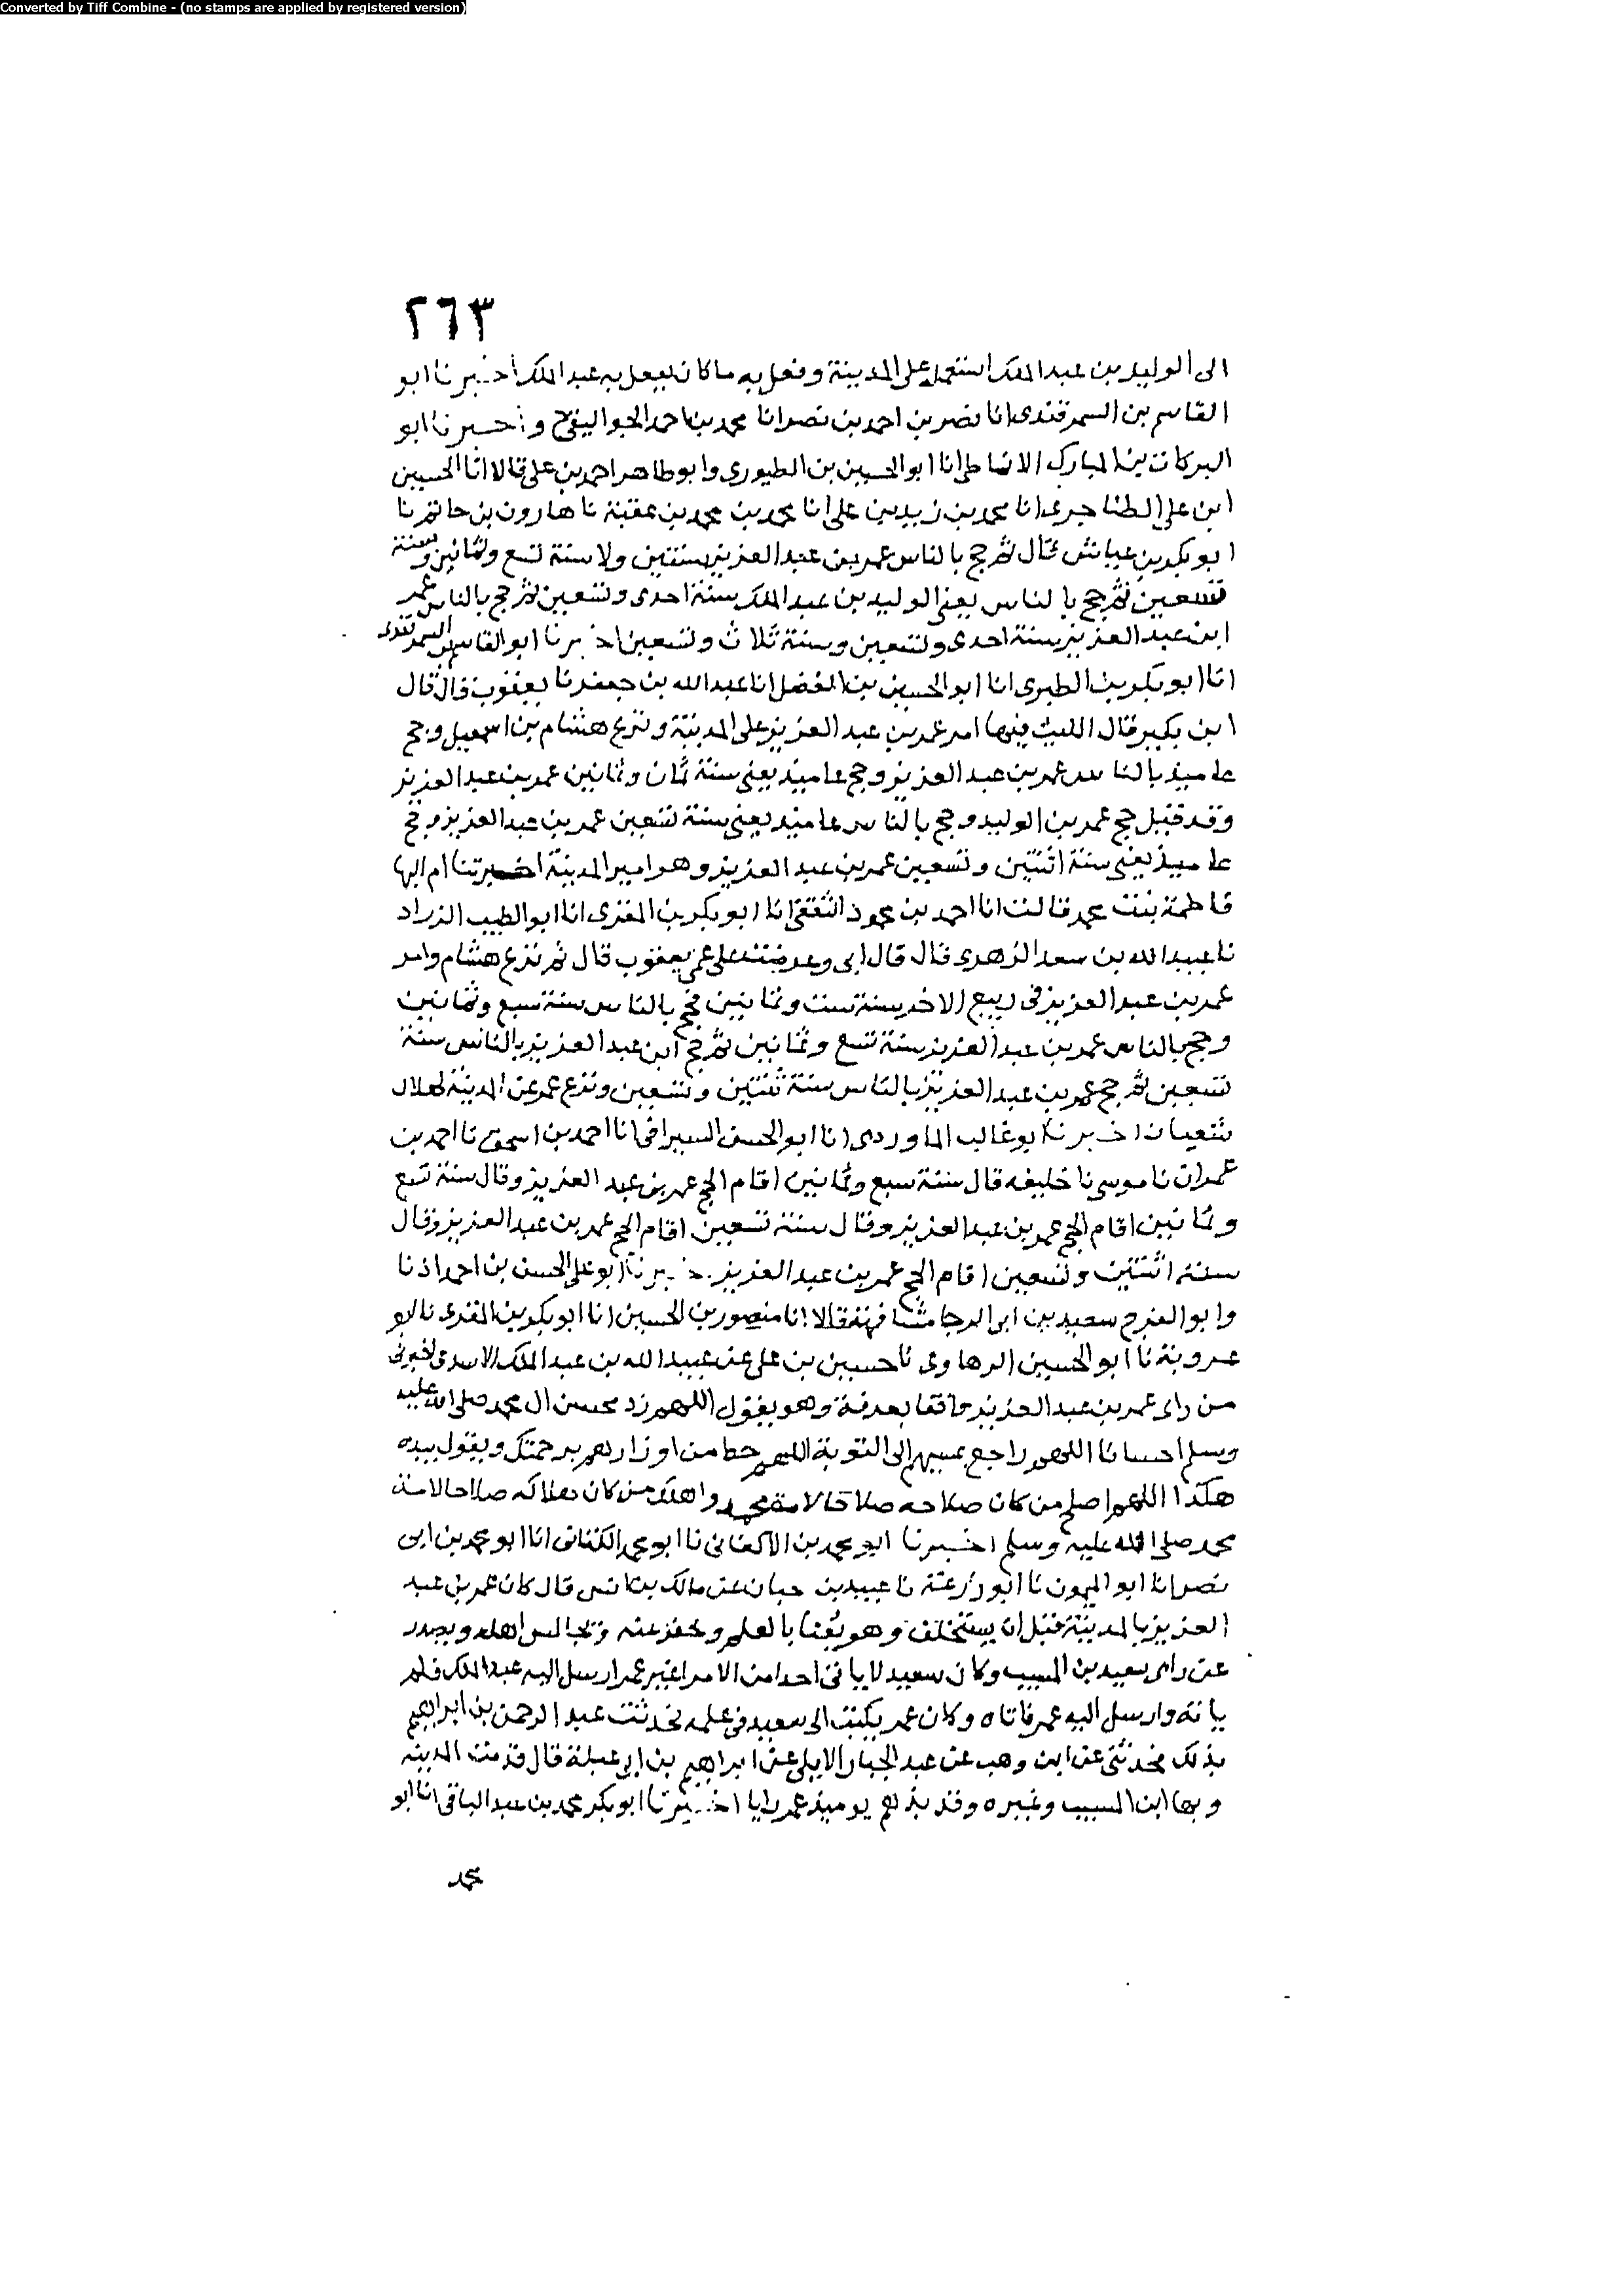 Converted by Tiff Combine - (no stamps are applied by registered version)
٢٦٣
الى الوليد بن عبد الملك استعمله على المدينة وفعل به ما كان يفعل به عبد الملك اخبرنا ابو
القاسم بن السمرقندى انا نصر بن احمد بن نصر انا محمد بن احمد الجواليقى ح واخبرنا ابو
البركات بن المبارك الانماطى انا ابو الحسين بن الطيورى وابو طاهر احمد بن على قالا انا الحسين
ابن على الطناجيرى انا محمد بن زيد بن على انا محمد بن محمد بن عقبة نا هارون بن حاتم نا
ابو بكر بن عياش قال ثم حج بالناس عمر بن عبد العزيز سنتين ولا سنة تسع وثمانين وسنة
تسعين ثم حج بالناس يعنى الوليد بن عبد الملك سنة احدى وتسعين ثم حج بالناس عمر
ابن عبد العزيز سنة احدى وتسعين وسنة ثلاث وتسعين اخبرنا ابو القاسم بن السمرقندى
انا ابو بكر بن الطبرى انا ابو الحسين بن الفضل انا عبد الله بن جعفر نا يعقوب قال قال
ابن بكير قال الليث فيها امر عمر بن عبد العزيز على المدينة ونزع هشام بن اسمعيل وحج
عاميذ بالناس عمر بن عبد العزيز وحج عاميذ يعنى سنة ثمان وثمانين عمر بن عبد العزيز
وقد قيل حج عمر بن الوليد وحج بالناس عاميذ يعنى سنة تسعين عمر بن عبد العزيز وحج
عاميذ يعنى سنة اثنتين وتسعين عمر بن عبد العزيز وهو امير المدينة اخبرتنا ام البها
فاطمة بنت محمد قالت انا احمد بن محمود الثقفى انا ابو بكر بن المقرى انا ابو الطيب الزراد
نا عبيد الله بن سعد الزهرى قال قال ابى وعرضته على عمى يعقوب قال ثم نزع هشام وامر
عمر بن عبد العزيز فى ربيع الاخر سنة ست وثمانين فحج بالناس سنة سبع وثمانين
وحج بالناس عمر بن عبد العزيز سنة تسع وثمانين ثم حج ابن عبد العزيز بالناس سنة
تسعين ثم حج عمر بن عبد العزيز بالناس سنة ثنتين وتسعين ونزع عمر عن المدينة لهلال
شعبان اخبرنا ابو غالب الماوردى انا ابو الحسن السيرافى انا احمد بن اسحق نا احمد بن
عمران نا موسى نا خليفه قال سنة سبع وثمانين اقام الحج عمر بن عبد العزيز وقال سنة تسع
وثمانين اقام الحج عمر بن عبد العزيز وقال سنة تسعين اقام الحج عمر بن عبد العزيز وقال
سنة اثنتين وتسعين اقام الحج عمر بن عبد العزيز اخبرنا ابو على الحسن بن احمد اذنا
وابو الفرج سعيد بن ابى الرجا مشافهة قالا انا منصور بن الحسين انا ابو بكر بن المقرى نا ابو
عروبة نا ابو الحسين الرهاوى نا حسين بن على عن عبيد الله بن عبد الملك الاسدى اخبرنى
من راى عمر بن عبد العزيز واقفا بعرفة وهو يقول اللهم زد محسن ال محمد صلى الله عليه
وسلم احسانا اللهم راجع بمسيهم الى التوبة اللهم حط من اوزارهم برحمتك ويقول بيده
هكذا اللهم اصلح من كان صلاحه صلاحا لامة محمد واهلك من كان هلاكه صلاحا لامة
محمد صلى الله عليه وسلم اخبرنا ابو محمد بن الاكفانى نا ابو محمد الكتانى انا ابو محمد بن ابى
نصر انا ابو الميمون نا ابو زرعة نا عبيد بن حبان عن مالك بن انس قال كان عمر بن عبد
العزيز بالمدينة قبل ان يستخلف وهو يعنا بالعلم ويحفز عنه ويجالس اهله ويصدر
عن راى سعيد بن المسيب وكان سعيد لا ياتى احدا من الامرا غير عمر ارسل اليه عبد الملك فلم
ياته وارسل اليه عمر فاتاه وكان عمر يكتب الى سعيد فى علمه فحدثت عبد الرحمن بن ابراهيم
بذلك فحدثنى عن ابن وهب عن عبد الجبار الايلى عن ابراهيم بن ابى عبلة قال قدمت المدينة
وبها ابن المسيب وغيره وقد بذهم يوميذ عمر رايا اخبرنا ابو بكر محمد بن عبد الباقى انا ابو
محمد